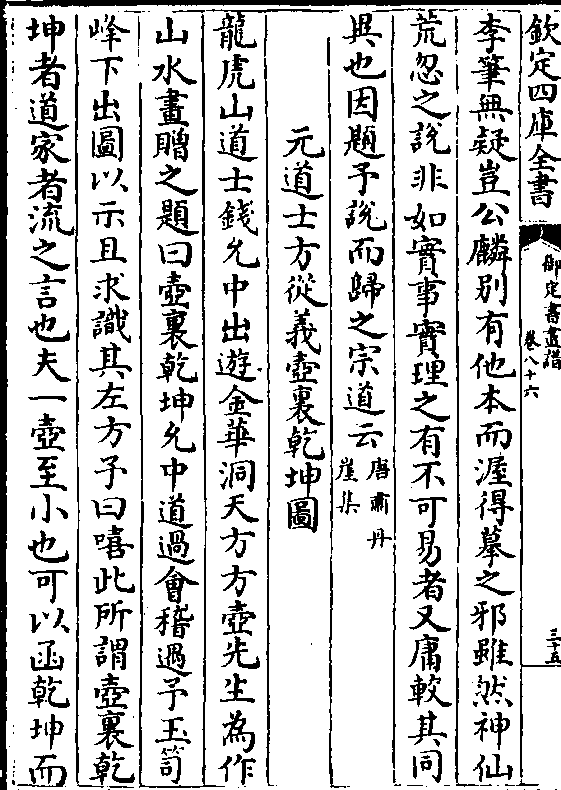 欽定四庫全書
御定書畫譜
卷八十六
三十五
李筆無疑豈公麟别有他本而渥得摹之邪雖然神仙
荒忽之說非如實事實理之有不可易者又庸較其同
異也因題予說而歸之宗道云唐肅丹崖集
元道士方從義壺裏乾坤圖
龍虎山道士錢允中出遊金華洞天方方壺先生為作
山水畫贈之題曰壺裏乾坤允中道過會稽過予玉笥
峰下出圖以示且求識其左方予曰嘻此所謂壺裏乾
坤者道家者流之言也夫一壺至小也可以函乾坤而